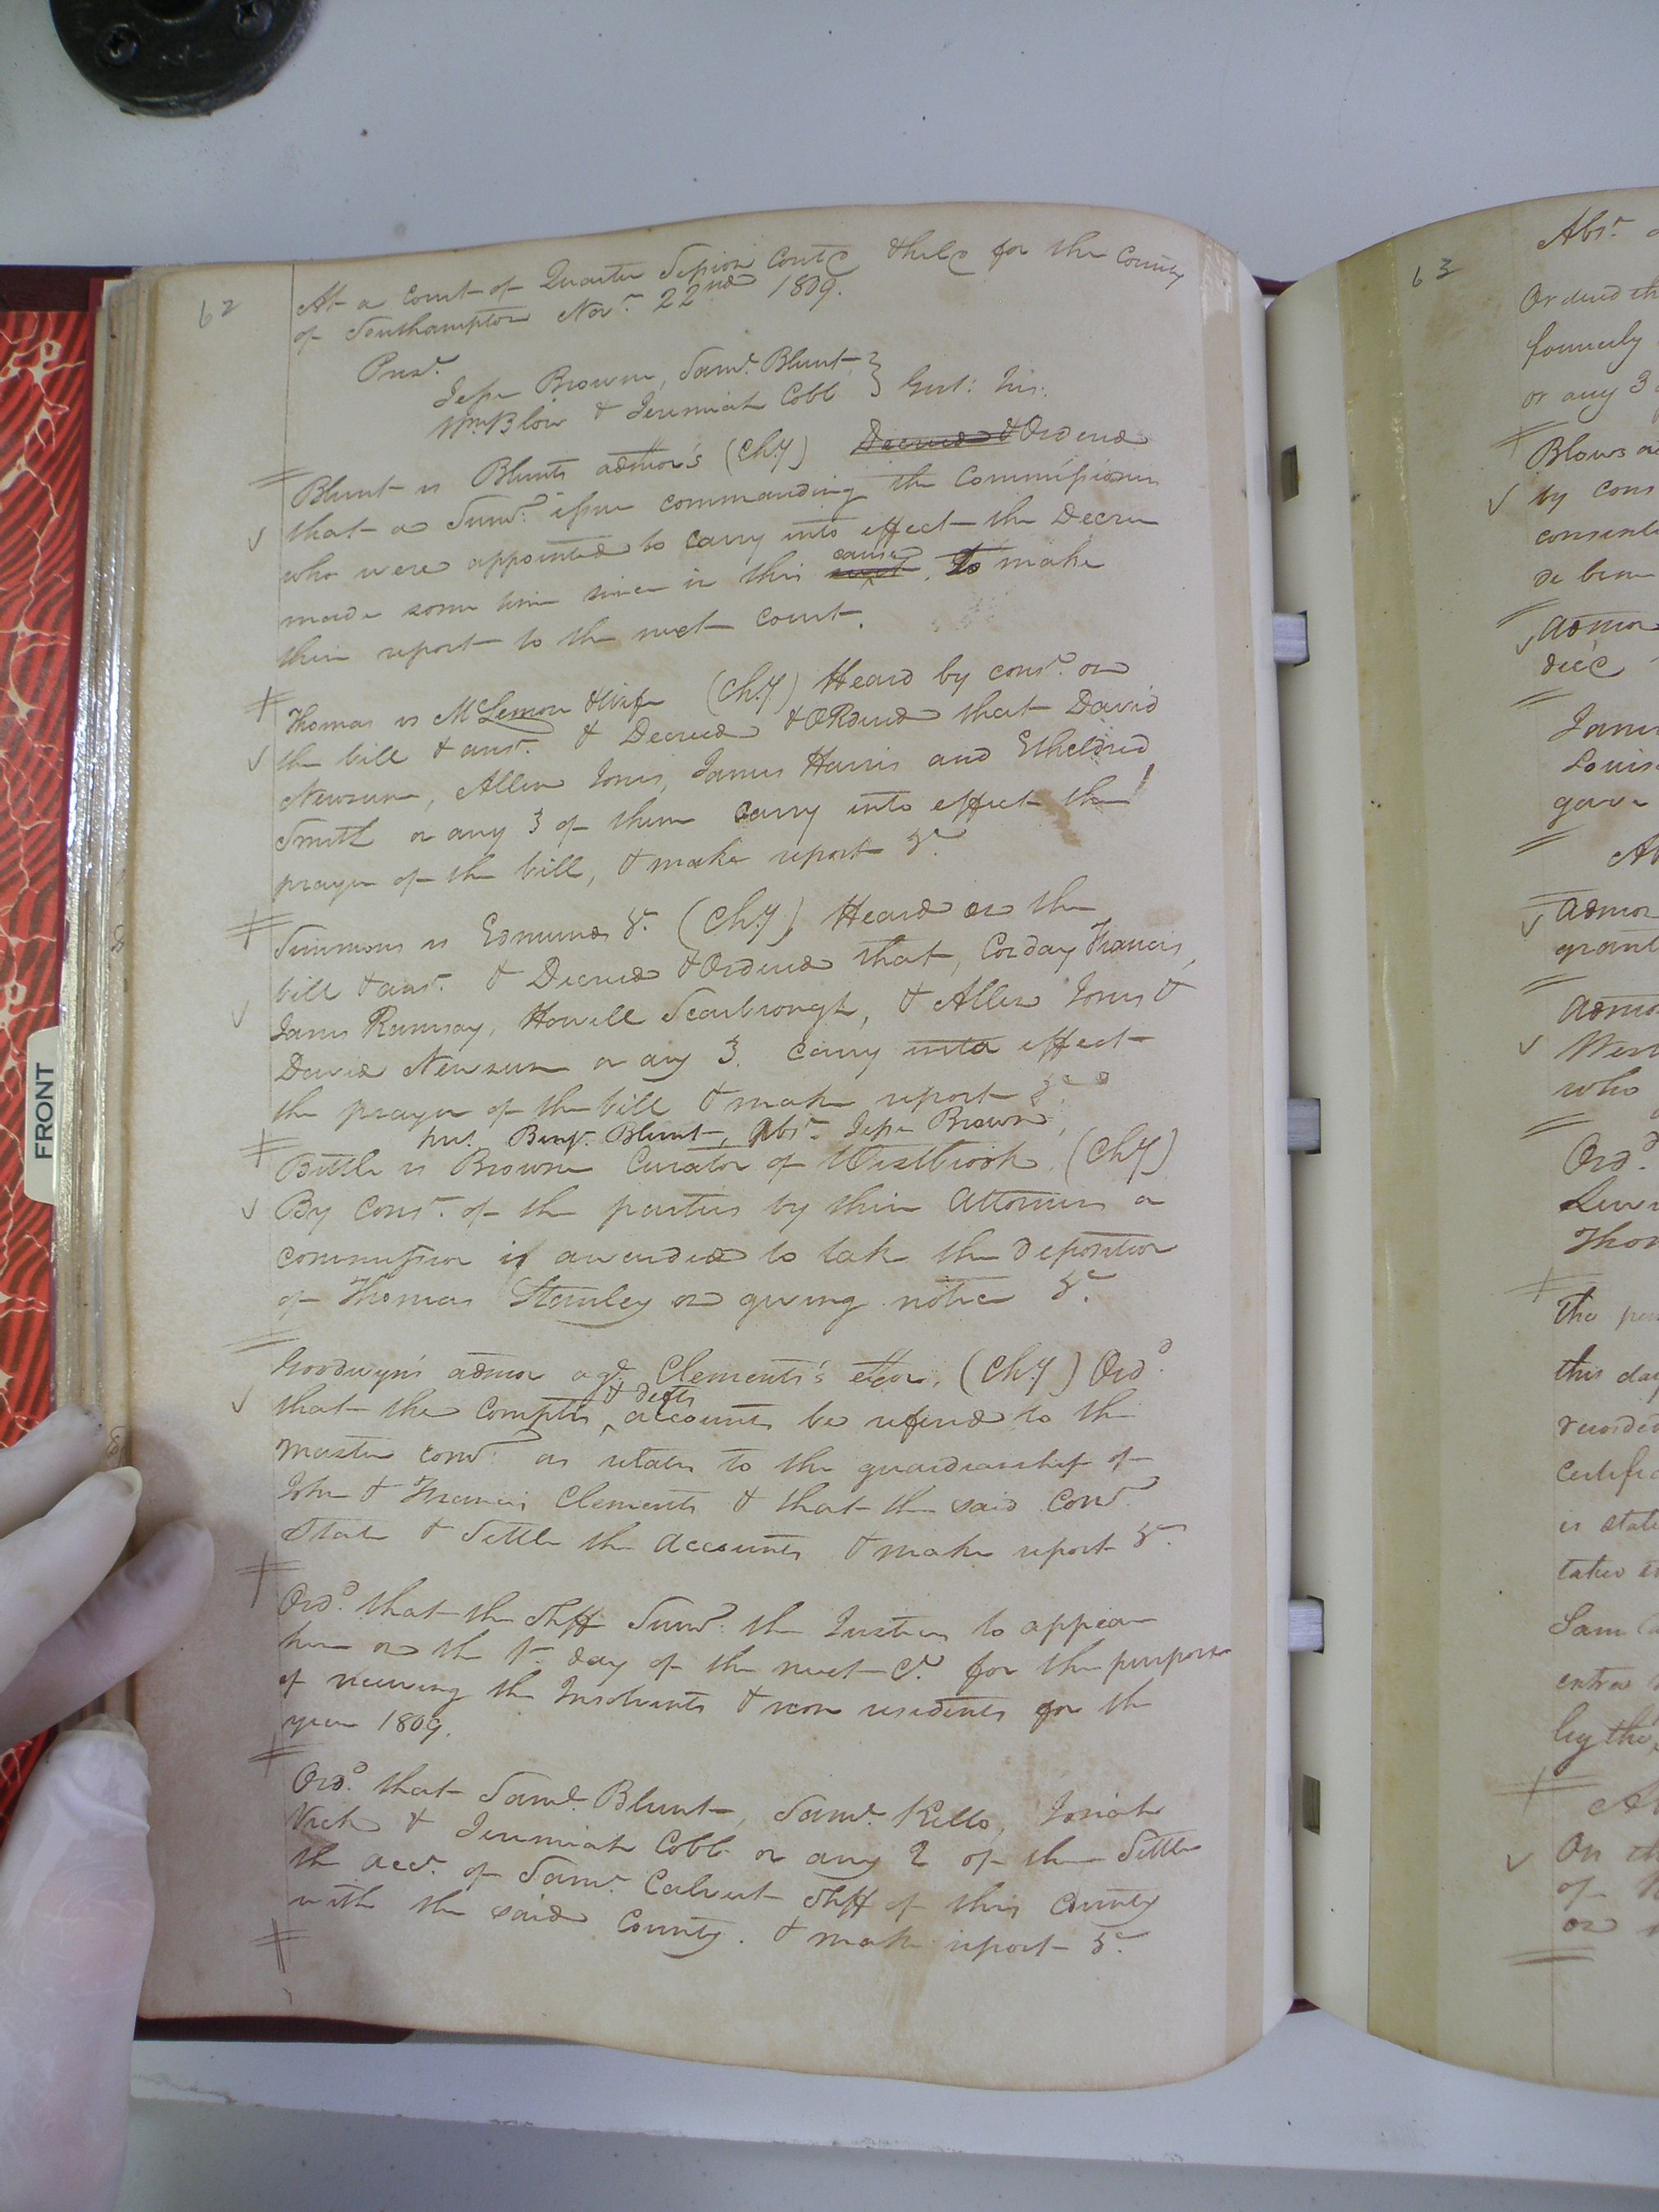 62
At a Court of Quarter Session Contd & held for the County
of Southampton Novr. 22nd 1809.
Prest.
Jesse Browne, Saml. Blunt,
Wm. Blow & Jeremiah Cobb } Gent: Jus:
Blunt vs Blunts admors (Ch:y) Decreed & Ordered
that a Sums. issue commanding the Commissioners
who were appointed to carry into effect the Decree
made some time since in this cause, to make
their report to the next court.
Thomas vs McLemore & Wife (Ch:y) Heard by const. on
the bill & ansr. & Decreed & ORdered that David
Newsum, Allen Jones, James Harris and Etheldred
Smith or any 3 of them carry into effect the
prayer of the bill, & make report &c.
Simmons vs Edmunds &c. (Ch:y) Heard on the
bill & ansr. & Decreed & Ordered that, Corday Francis,
James Ramsay, Howell Scarbrough, & Allen Jones &
David Newsum or any 3. carry into effect
the prayer of the bill & make report &c.
prest. Benjn. Blunt, Abst. Jesse Browne,
Bittle vs Browne Curator of Westbrook, (Ch:y)
By Const. of the parties by their Attornies a
commission is awarded to take the deposition
of Thomas Stanley on giving notice &c.
Goodwyn's admor agt. Clements's exor. (Ch:y) Ord.
that the Complts & defts accounts be refered to the
Master comr. as relates to the guardianship of
John & Francis Clements & that the said Comr.
State & Settle the accounts & make report &c.
Ord. that the Shff Sums. the Justices to appear
here on the 1st. day of the next Ct. for the purpose
of receiving the Insolvents & non residents for the
year 1809.
Ord. that Saml. Blunt, Saml. Kello, Josiah
Vick & Jeremiah Cobb or any 2 of them Settle
the acct. of Saml. Calvert Shff of this County
with the said County. & make report &c.
63
Abst.
Ordered th
formerly
or any 3
Blows
by cons
consent
de bene
admor
decd
James
Louis
gave
admor
grant
admo
West
who
Ord.
Thom
The per
this day
recorded
certific
is state
taken
Same
by the
On th
of
or